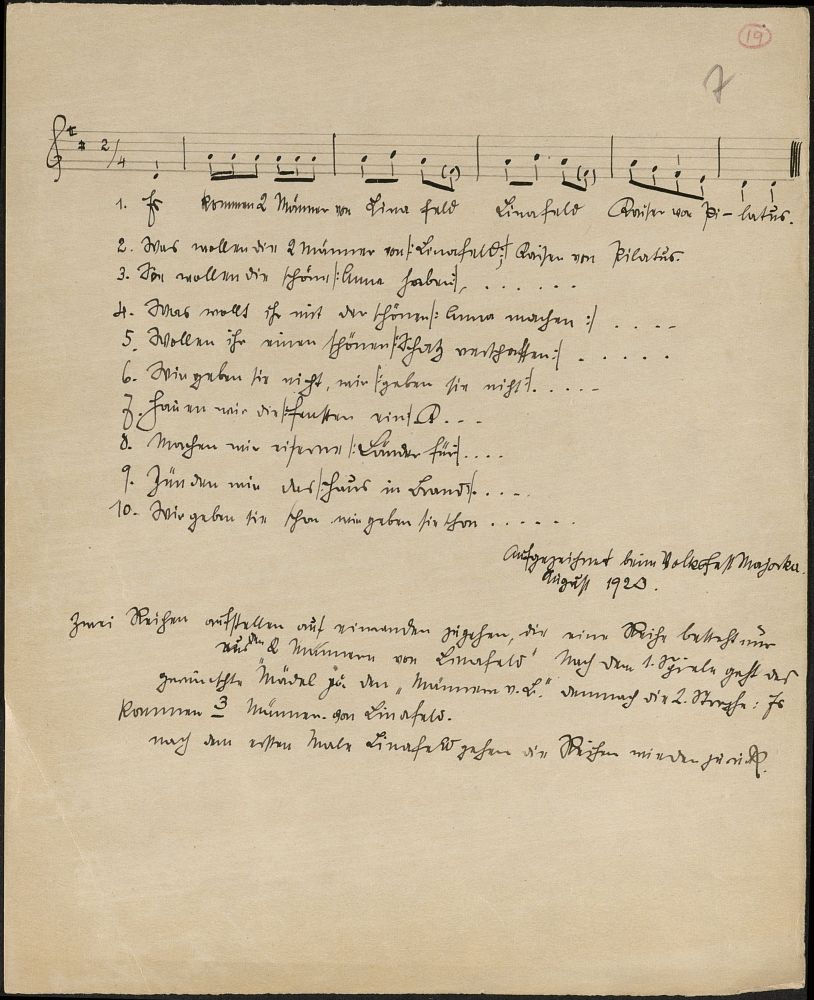 19
7
2/4
1. Es kommen 2 Männer von Lina feld Linafeld Kaiser von Pi-latus.
2. Was wollen die 2 Männer von |: Linafeld :| Kaiser von Pilatus.
3. Sie wollen die schöne |: Anna haben :| . . . . . .
4. Was wollt ihr mit der schönen |: Anna machen :| . . . .
5. Wollen ihr einen schönen |: Schatz verschaffen :| . . . . .
6. Wir geben sie nicht, wir |: geben sie nicht :| . . . . .
7. Hauen wir die |: Fenster ein :| K . . .
8. Machen wir eiserne |: Länder für :| . . . .
9. Zünden wir das |: Haus in Brand :| . . . .
10. Wir geben sie schon wir geben sie schon . . . . . .
Aufgezeichnet beim Volksfest Majorka.
August 1923.
Zwei Reihen aufstellen auf einander zugehen, die eine Reihe besteht nur
aus den 2 Männern von Linafeld" Nach dem 1. Spiele geht das
gewünschte Mädel zu den „Männern v. L." demnach die 2. Strophe: Es
kommen 3 Männer von Linafeld.
nach dem ersten Male Linafeld gehen die Reihen wieder zurück.